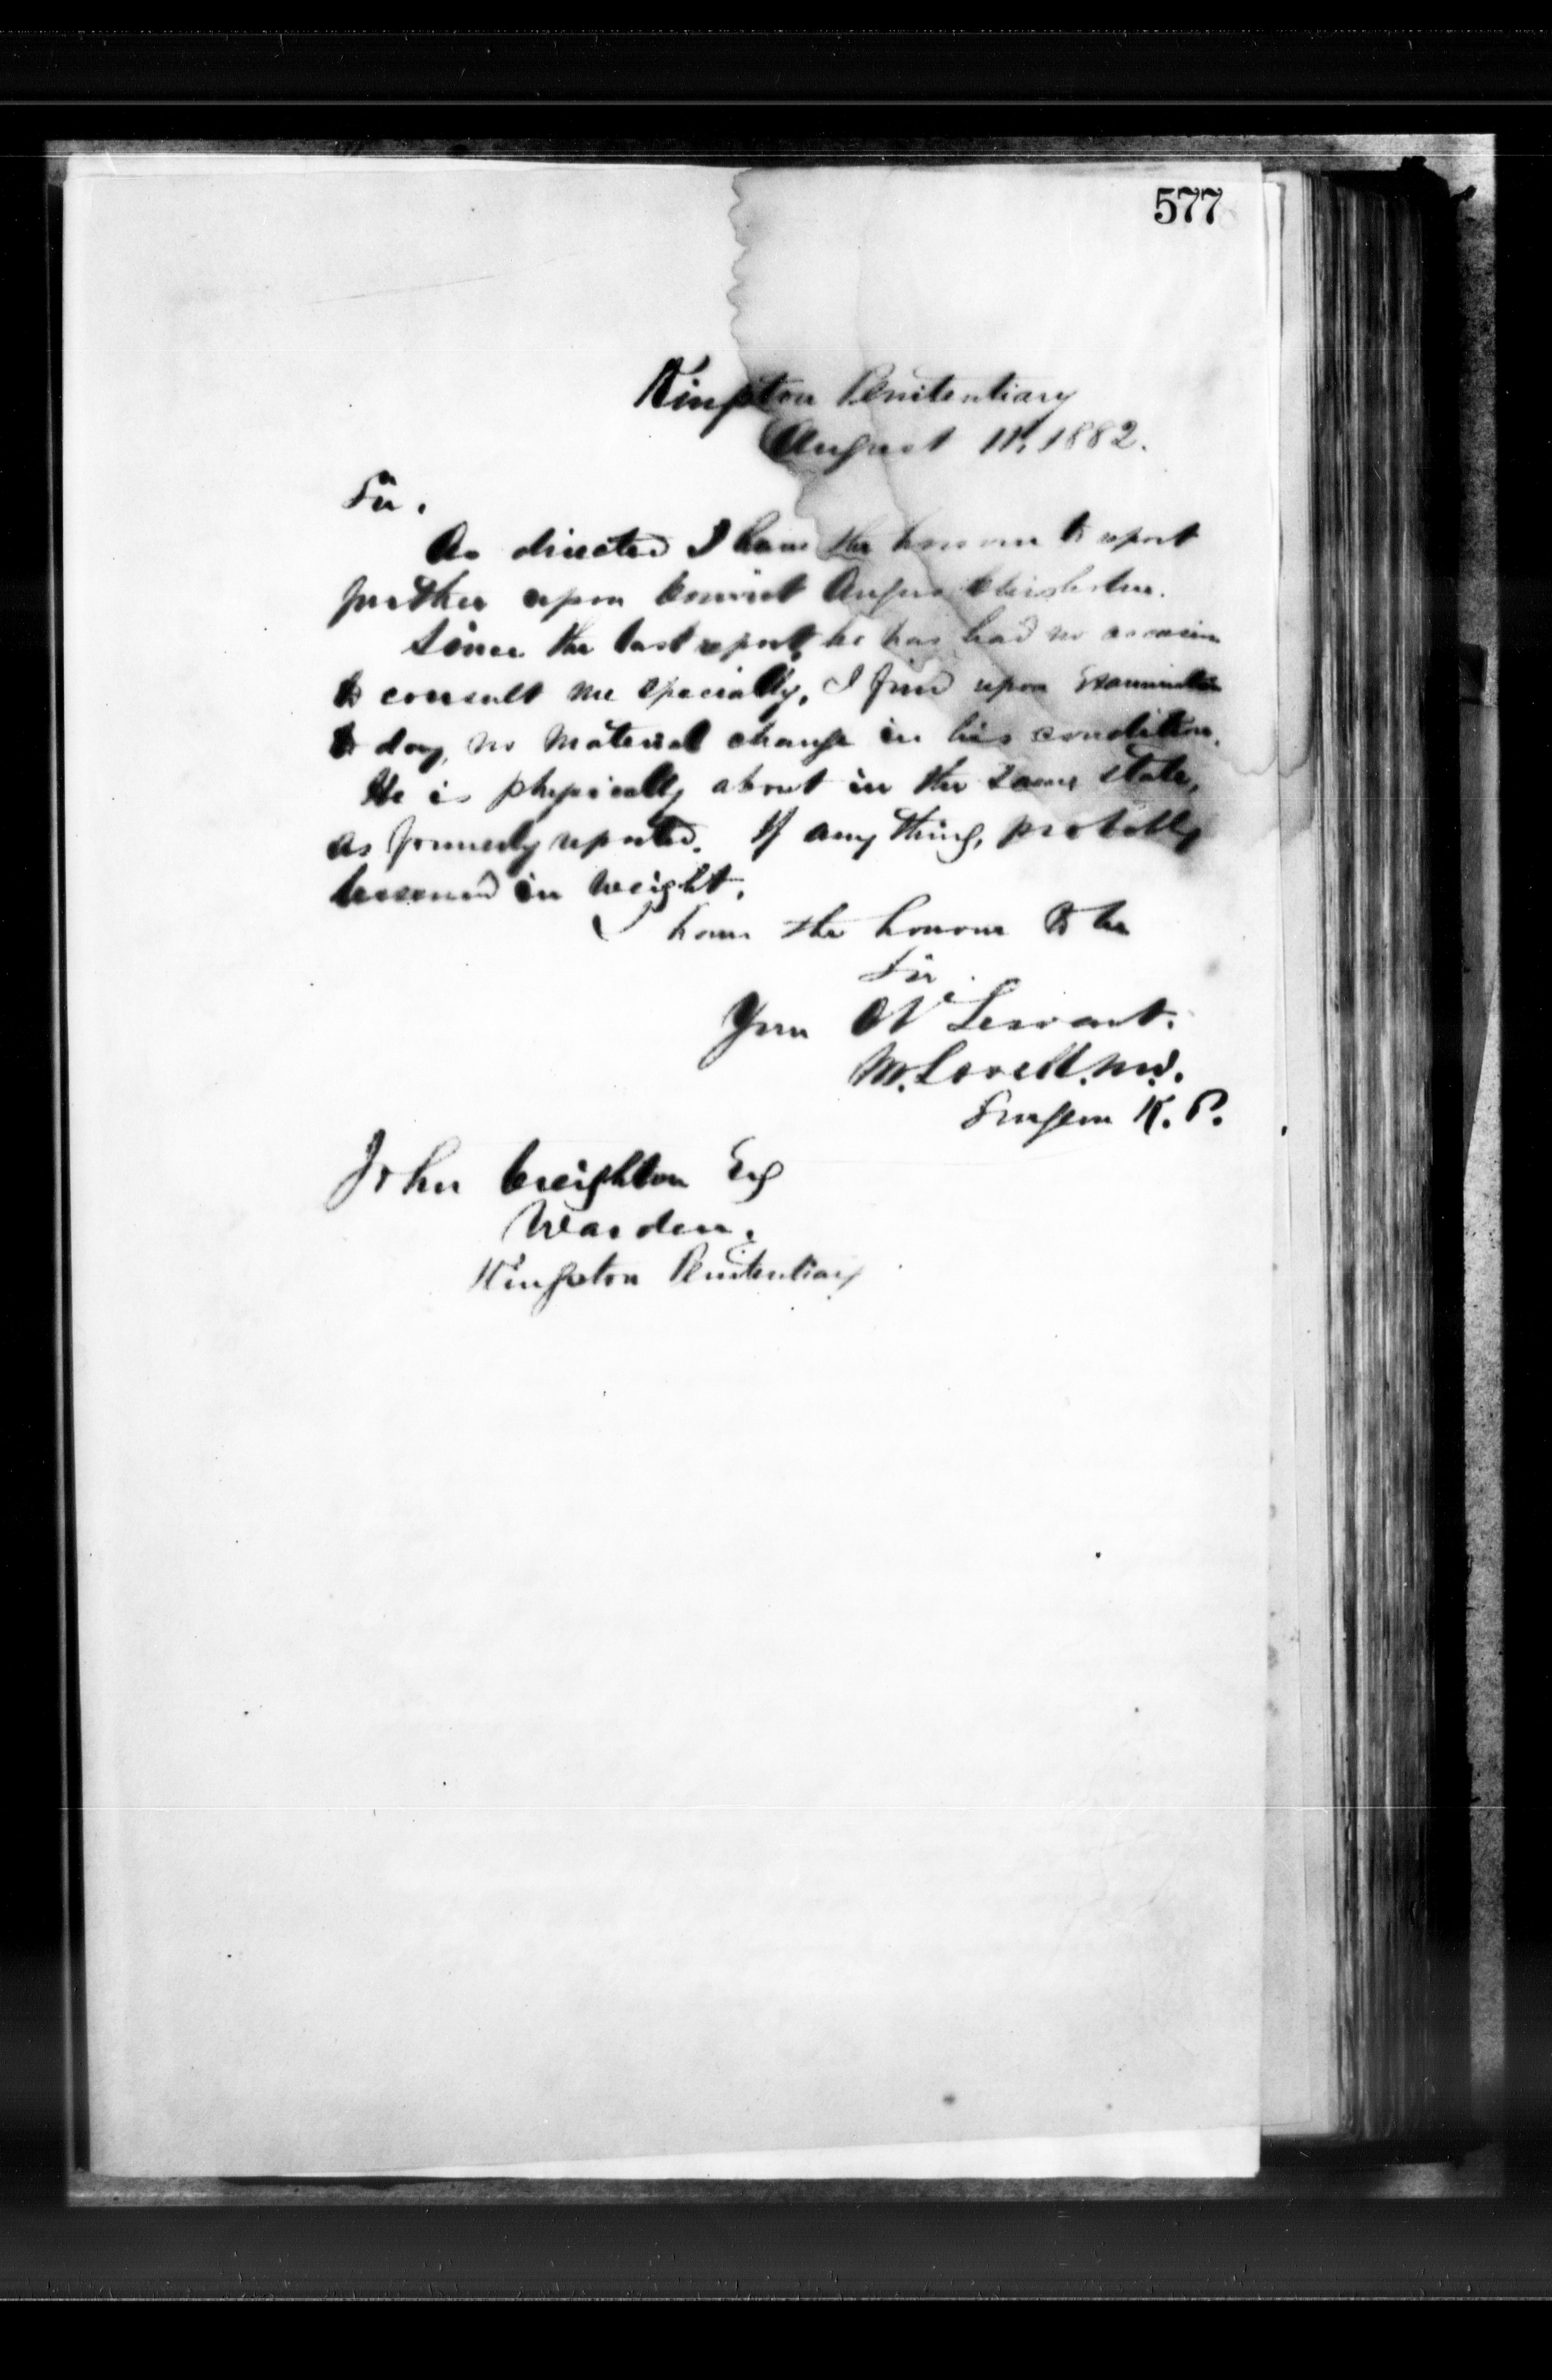 577
Kingston Penitentiary
August 11, 1882.
Sir,
As directed I have the honour to report
further upon Convict Angus Chisholm.
Since the last report, he has had no occasion
to consult me specially, I find upon Examination
to day, no material change in his condition.
He is physically about in the same state,
as formerly reported. If any thing, probably
lessened in weight.
I have the honour to be
Sir
Your Ob Servant.
M. Lavell. M.D.
Surgeon K. P.
John Creighton Esq
Warden.
Kingston Penitentiary